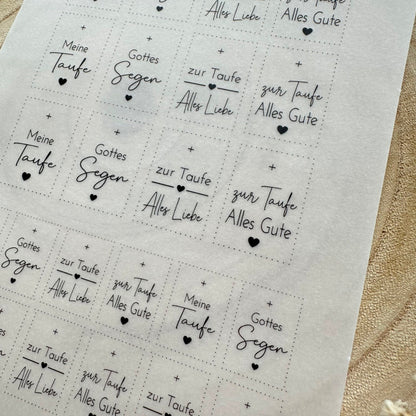 Alles Liebe
Alles Gute
Meine
Taufe
Gottes
Segen
zur Taufe
Alles Liebe
zur Taufe
Alles Gute
Meine
Taufe
Gottes
Segen
zur Taufe
Alles Liebe
zur Taufe
Alles Gute
Gottes
Segen
zur Taufe
Alles Liebe
zur Taufe
Alles Gute
Meine
Taufe
Gottes
Segen
zur Taufe
Alles Liebe
zur Taufe
Alles Gute
zur Taufe